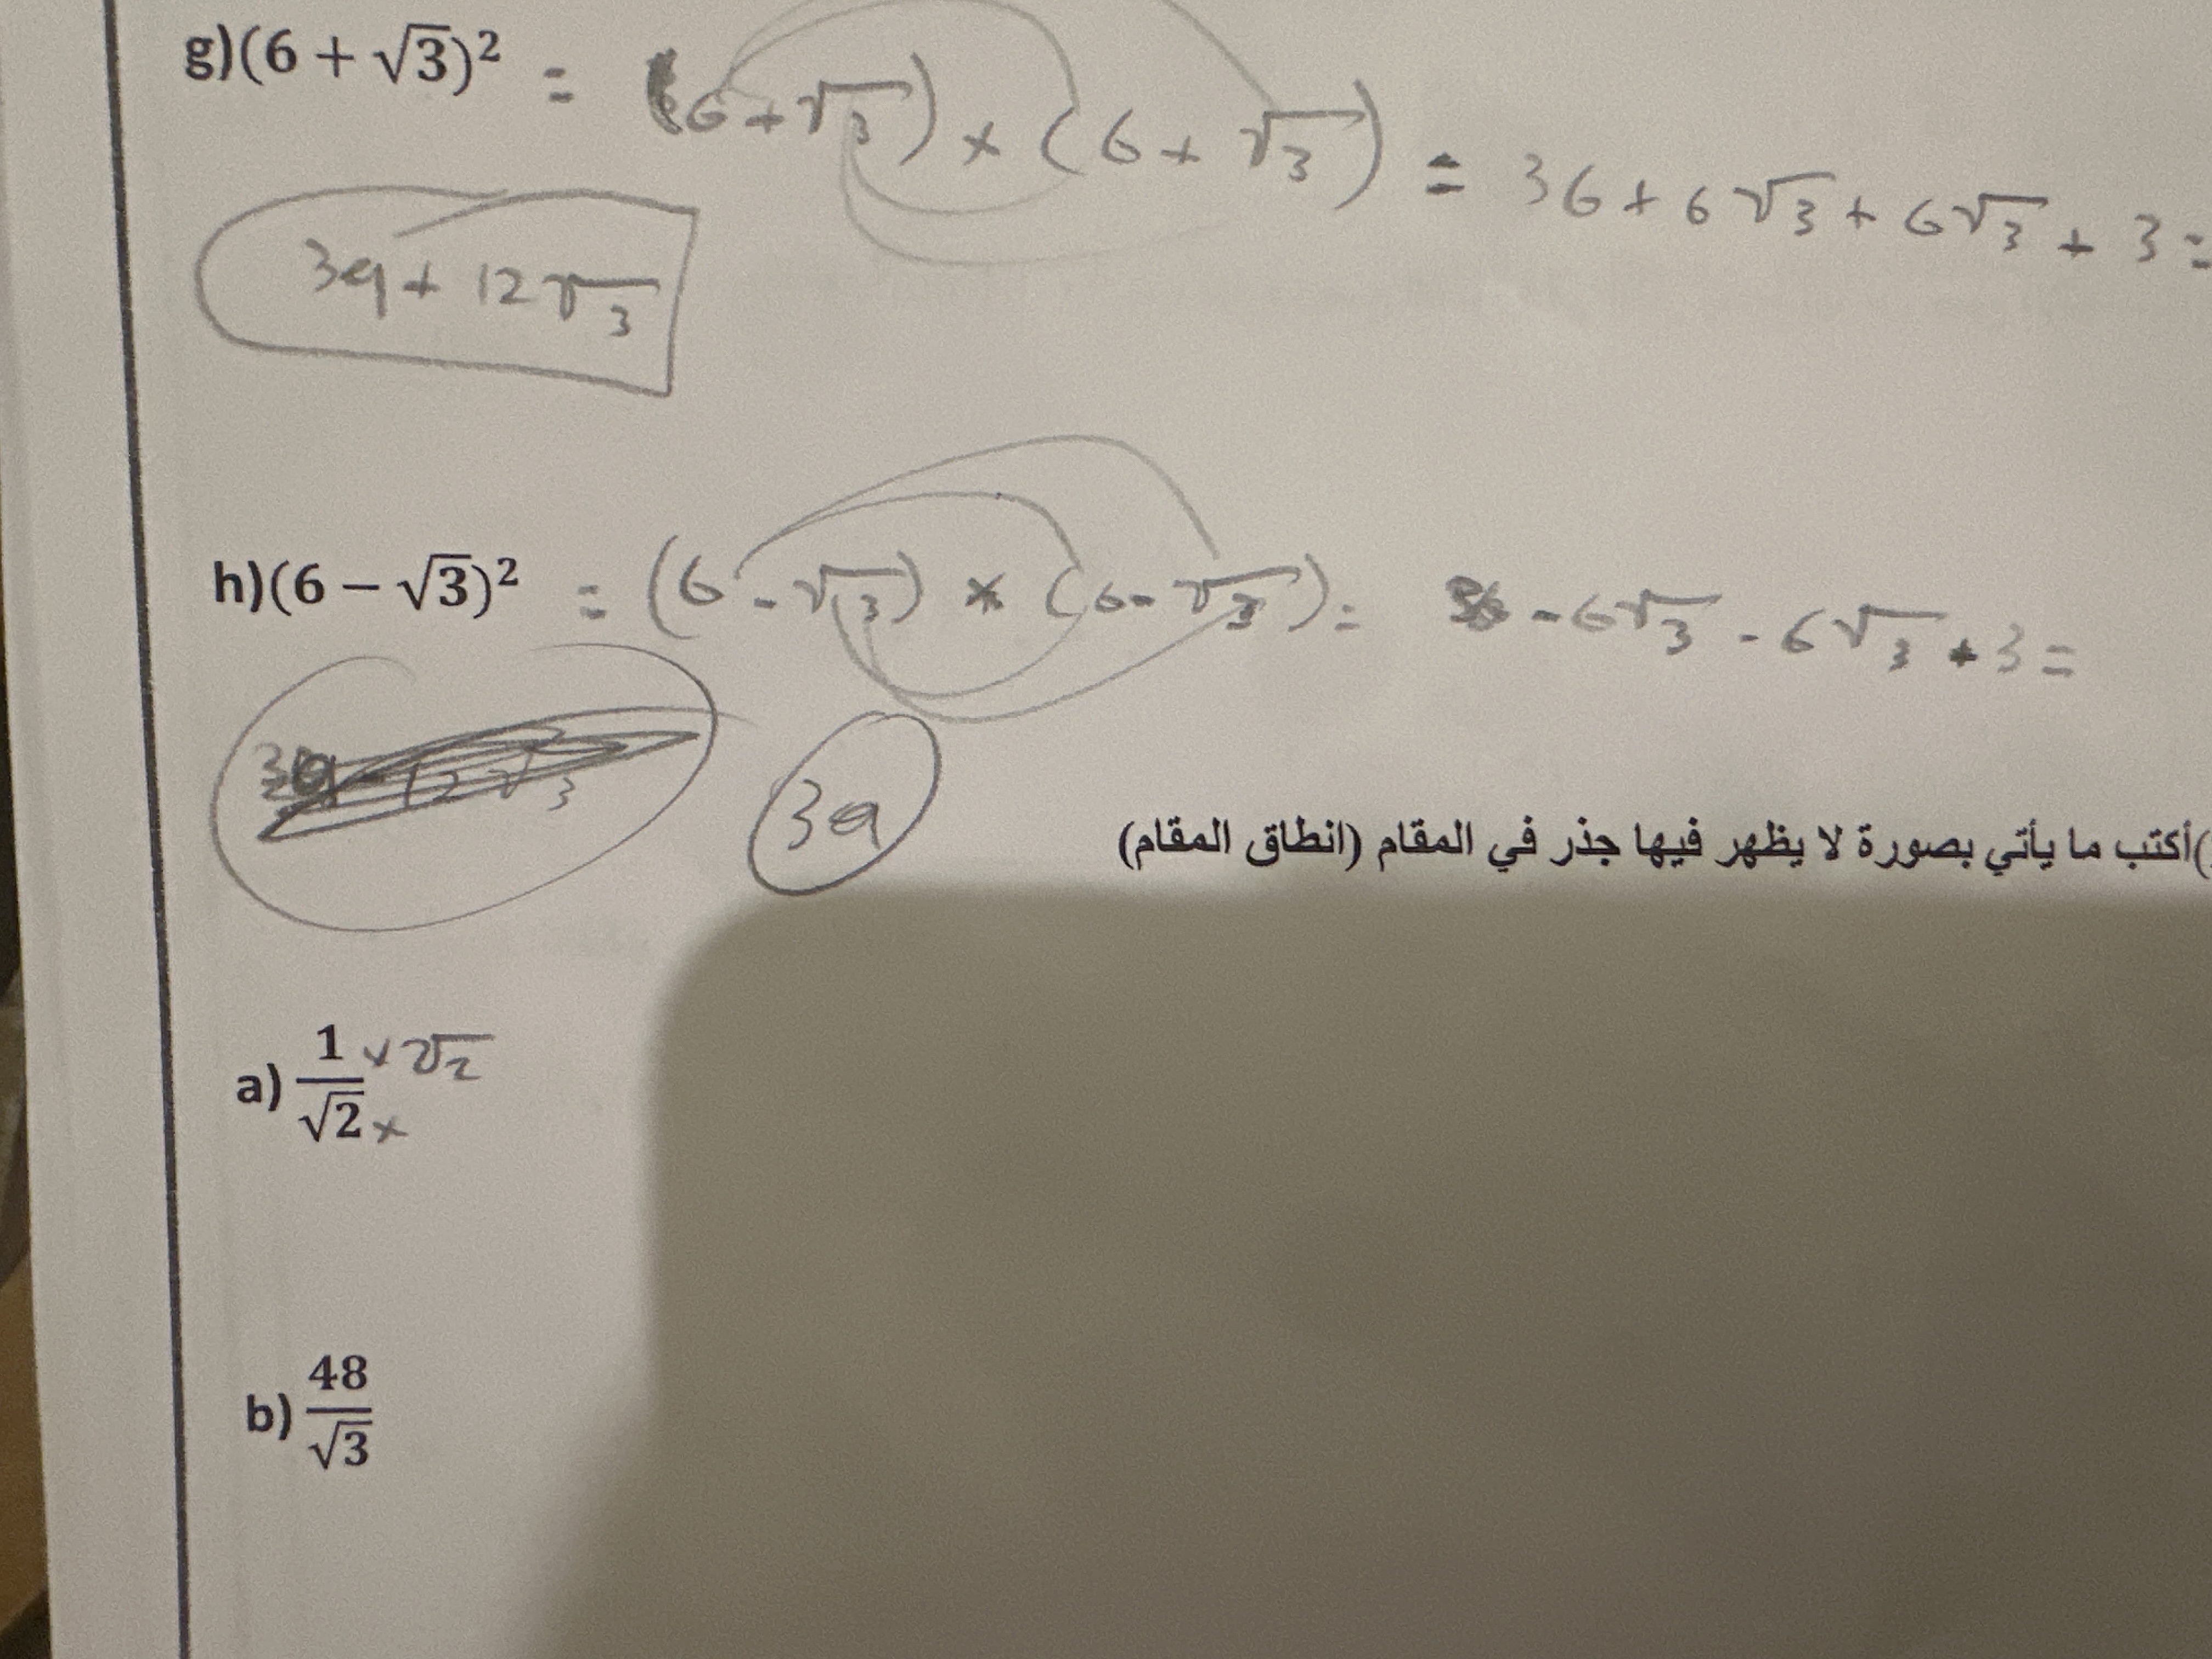 g)(6 + √3)² = (6+√3) × (6+√3) = 36+6√3+6√3+3=
39+12√3
h)(6 − √3)² = (6-√3) × (6-√3)= 36-6√3-6√3+3=
39-12√3 39
)أكتب ما يأتي بصورة لا يظهر فيها جذر في المقام (انطاق المقام)
a) 1/√2 ×√2 ×
b) 48/√3